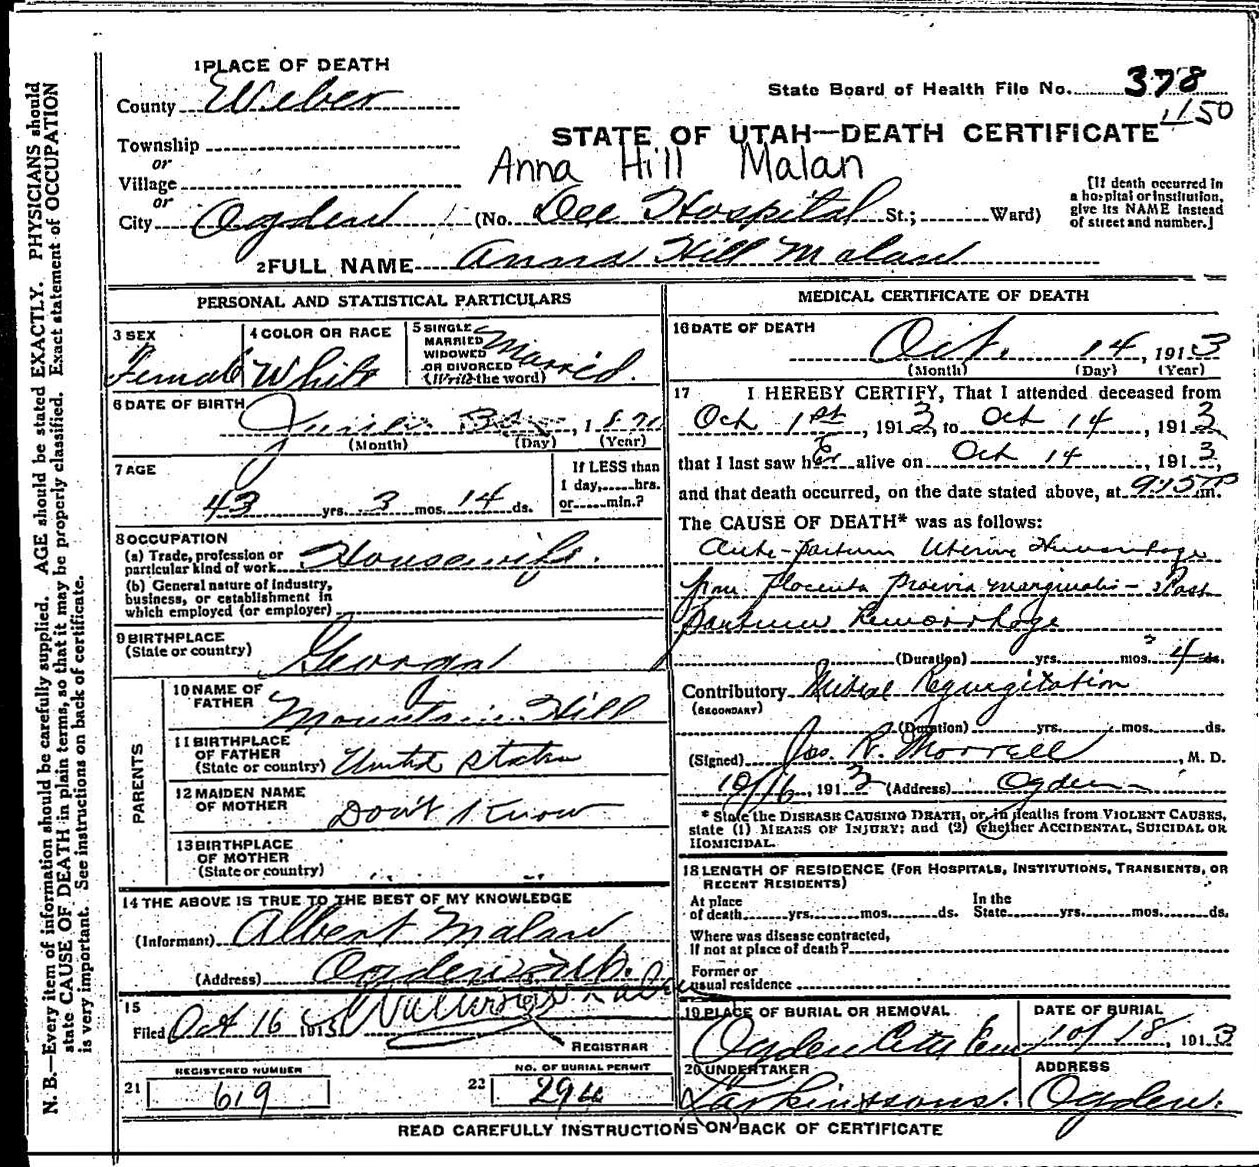 1 PLACE OF DEATH
County Weber
State Board of Health File No. 378
1150
Township
or
Village
or
STATE OF UTAH—DEATH CERTIFICATE
Anna Hill Malan
City Ogden (No. Dee Hospital St.; Ward)
[If death occurred in
a hospital or institution,
give its NAME instead
of street and number.]
2 FULL NAME Anna Hill Malan
PERSONAL AND STATISTICAL PARTICULARS
3 SEX
Female
4 COLOR OR RACE
White
5 SINGLE
MARRIED
WIDOWED
OR DIVORCED
(Write the word)
Married.
6 DATE OF BIRTH
, 1870
(Month) (Day) (Year)
7 AGE
43 yrs. 3 mos. 14 ds.
If LESS than
1 day, hrs.
or min.?
8 OCCUPATION
(a) Trade, profession or
particular kind of work Housewife.
(b) General nature of industry,
business, or establishment in
which employed (or employer)
9 BIRTHPLACE
(State or country) Georgia
PARENTS
10 NAME OF
FATHER Mountain Hill
11 BIRTHPLACE
OF FATHER
(State or country) United States
12 MAIDEN NAME
OF MOTHER Don't Know
13 BIRTHPLACE
OF MOTHER
(State or country) " "
14 THE ABOVE IS TRUE TO THE BEST OF MY KNOWLEDGE
(Informant) Albert Malan
(Address) Ogden, Ut.
15
Filed Oct 16 1913
REGISTRAR
REGISTERED NUMBER
21 619
NO. OF BURIAL PERMIT
22 294
MEDICAL CERTIFICATE OF DEATH
16 DATE OF DEATH
Oct. 14, 1913
(Month) (Day) (Year)
17 I HEREBY CERTIFY, That I attended deceased from
Oct 1st, 1913, to Oct 14, 1913,
that I last saw her alive on Oct 14, 1913,
and that death occurred, on the date stated above, at 9:15 P m.
The CAUSE OF DEATH* was as follows:
Ante-partum Uterine Hemorrhage
from Placenta Praevia marginalis - Post
partum Hemorrhage
(Duration) yrs. mos. 4 ds.
Contributory Mitral Regurgitation
(SECONDARY)
(Duration) yrs. mos. ds.
(Signed) Jos. R. Morrell, M. D.
10/16, 1913 (Address) Ogden
* State the DISEASE CAUSING DEATH, or, in deaths from VIOLENT CAUSES,
state (1) MEANS OF INJURY; and (2) whether ACCIDENTAL, SUICIDAL OR
HOMICIDAL.
18 LENGTH OF RESIDENCE (FOR HOSPITALS, INSTITUTIONS, TRANSIENTS, OR
RECENT RESIDENTS)
At place
of death yrs. mos. ds.
In the
State yrs. mos. ds.
Where was disease contracted,
If not at place of death?
Former or
usual residence
19 PLACE OF BURIAL OR REMOVAL
Ogden City Cem
DATE OF BURIAL
10/18, 1913
20 UNDERTAKER
Larkin & Sons.
ADDRESS
Ogden.
READ CAREFULLY INSTRUCTIONS ON BACK OF CERTIFICATE
N.B.—Every item of information should be carefully supplied. AGE should be stated EXACTLY. PHYSICIANS should
state CAUSE OF DEATH in plain terms, so that it may be properly classified. Exact statement of OCCUPATION
is very important. See instructions on back of certificate.